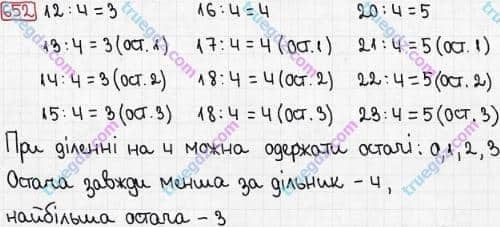 652 12 : 4 = 3 16 : 4 = 4 20 : 4 = 5
13 : 4 = 3 (ост. 1) 17 : 4 = 4 (ост. 1) 21 : 4 = 5 (ост. 1)
14 : 4 = 3 (ост. 2) 18 : 4 = 4 (ост. 2) 22 : 4 = 5 (ост. 2)
15 : 4 = 3 (ост. 3) 18 : 4 = 4 (ост. 3) 23 : 4 = 5 (ост. 3)
При діленні на 4 можна одержати остачі: 0, 1, 2, 3
Остача завжди менша за дільник - 4,
найбільша остача - 3
truegdz.com